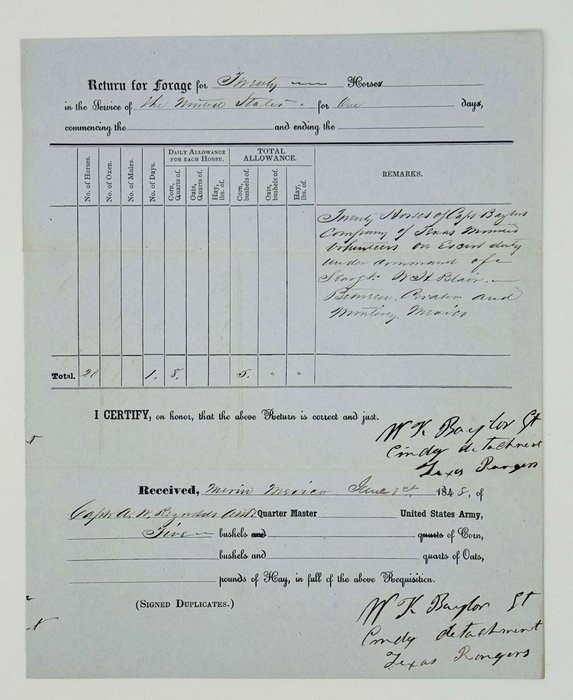 Return for Forage for Twenty Horses
in the Service of The United States. for One days,
commencing the and ending the
No. of Horses. No. of Oxen. No. of Mules. No. of Days. DAILY ALLOWANCE FOR EACH HORSE. Corn, Quarts of. Oats, Quarts of. Hay, lbs. of. TOTAL ALLOWANCE. Corn, bushels of. Oats, bushels of. Hay, lbs. of. REMARKS.
Twenty Horses of Capt Baylors
Company of Texas Mounted
Volunteers on Escort duty
under command of
Sergt. W H Blair
Between and
Monterey Mexico
Total. 20 1. 8. 5. " "
I CERTIFY, on honor, that the above Return is correct and just.
W K Baylor Lt
Cmdg detachment
Texas Rangers
Received, Mexico June 1st 1848, of
Capt. A. W. Reynolds Asst. Quarter Master United States Army,
Five bushels and quarts of Corn,
bushels and quarts of Oats,
pounds of Hay, in full of the above Requisition.
(SIGNED DUPLICATES.)
W K Baylor Lt
Cmdg detachment
Texas Rangers